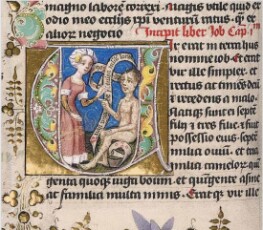 magno labore correxi. Magis utile quid
odio meo ecclijs xpi venturū ratus. ex
alioꝝ negocio Incipit liber Job Cap
ir erat in terra hus
nomine iob. et erat
vir ille simplex. et
rectus ac timēs deū
et recedens a malo.
Natiqꝫ sunt ei septē
filij et tres filie. et fuit
possessio eius septē
milia ouiū. et tria
milia cameloꝝ. quin
genta quoqꝫ iuga boum. et quingente asine
ac familia multa nimis. Eratqꝫ vir ille